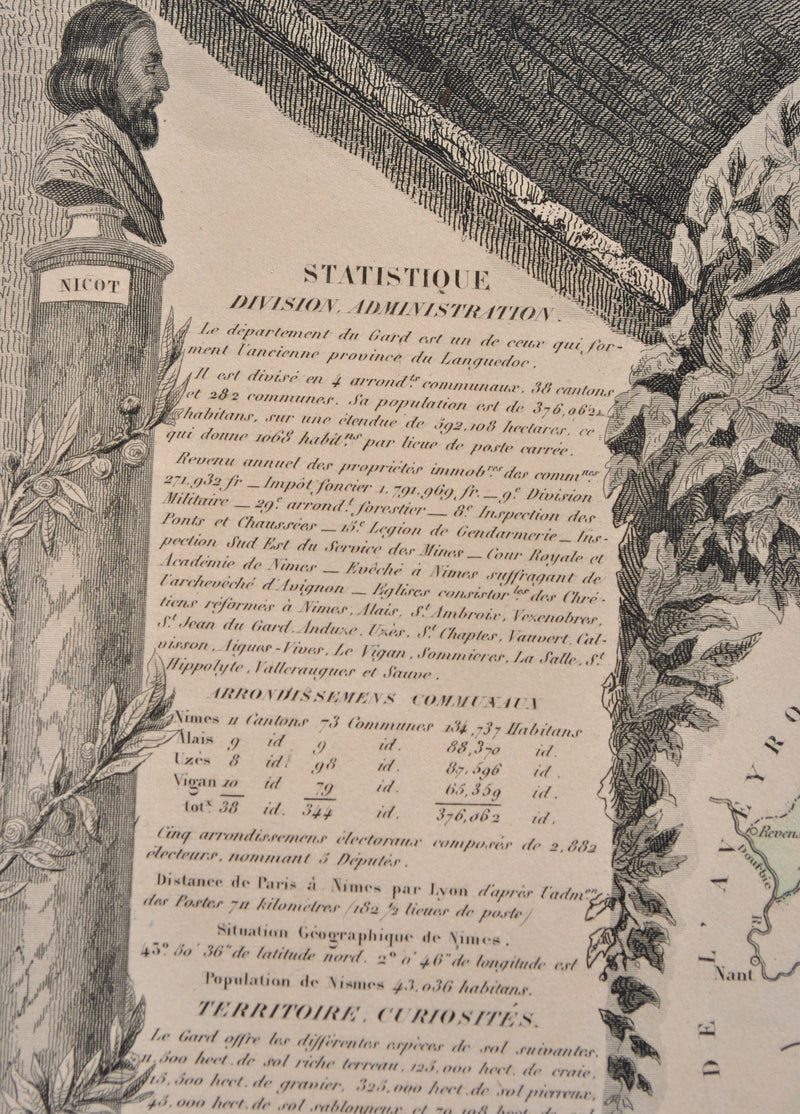 NICOT
STATISTIQUE
DIVISION, ADMINISTRATION.
Le département du Gard est un de ceux qui for-
ment l'ancienne province du Languedoc.
Il est divisé en 4 arrond.ts communaux, 38 cantons
et 282 communes. Sa population est de 376,062
habitans, sur une étendue de 592,108 hectares, ce
qui donne 1068 habit.ns par lieue de poste carrée.
Revenu annuel des propriétés immob.res des comm.nes
271,932 fr — Impôt foncier 1,791,969 fr. — 9.e Division
Militaire — 29.e arrond.t forestier — 8.e Inspection des
Ponts et Chaussées — 15.e Légion de Gendarmerie — Ins-
pection Sud Est du Service des Mines — Cour Royale et
Académie de Nimes — Evêché à Nimes suffragant de
l'archevêché d'Avignon — Eglises consistor.les des Chré-
tiens réformés à Nimes, Alais, S.t Ambroix, Vezenobres,
S.t Jean du Gard, Anduze, Uzès, S.t Chaptes, Vauvert, Cal-
visson, Aigues-Vives, Le Vigan, Sommieres, La Salle, S.t
Hippolyte, Valleraugues et Sauve.
ARRONDISSEMENS COMMUNAUX
Nimes 11 Cantons 73 Communes 134,737 Habitans
Alais 9 id 9 id. 88,370 id.
Uzès 8 id. 98 id. 87,596 id.
Vigan 10 id 79 id. 65,359 id.
tot.x 38 id. 344 id. 376,062 id.
Cinq arrondissemens électoraux composés de 2,882
électeurs, nommant 5 Députés.
Distance de Paris à Nimes par Lyon d'après l'adm.on
des Postes 711 kilomètres (182 1/2 lieues de poste)
Situation Géographique de Nimes.
43° 50' 36" de latitude nord. 2° 0' 46" de longitude est
Population de Nismes 43,036 habitans.
TERRITOIRE, CURIOSITÉS.
Le Gard offre les différentes espèces de sol suivantes,
11,500 hect. de sol riche terreau, 125,000 hect. de craie,
15,500 hect. de gravier, 325,000 hect. de sol pierreux,
45,000 hect. de sol sablonneux et 70,108 hect. de sol
DE L'AVEYRO
Reven
Dourbie
R
Nant